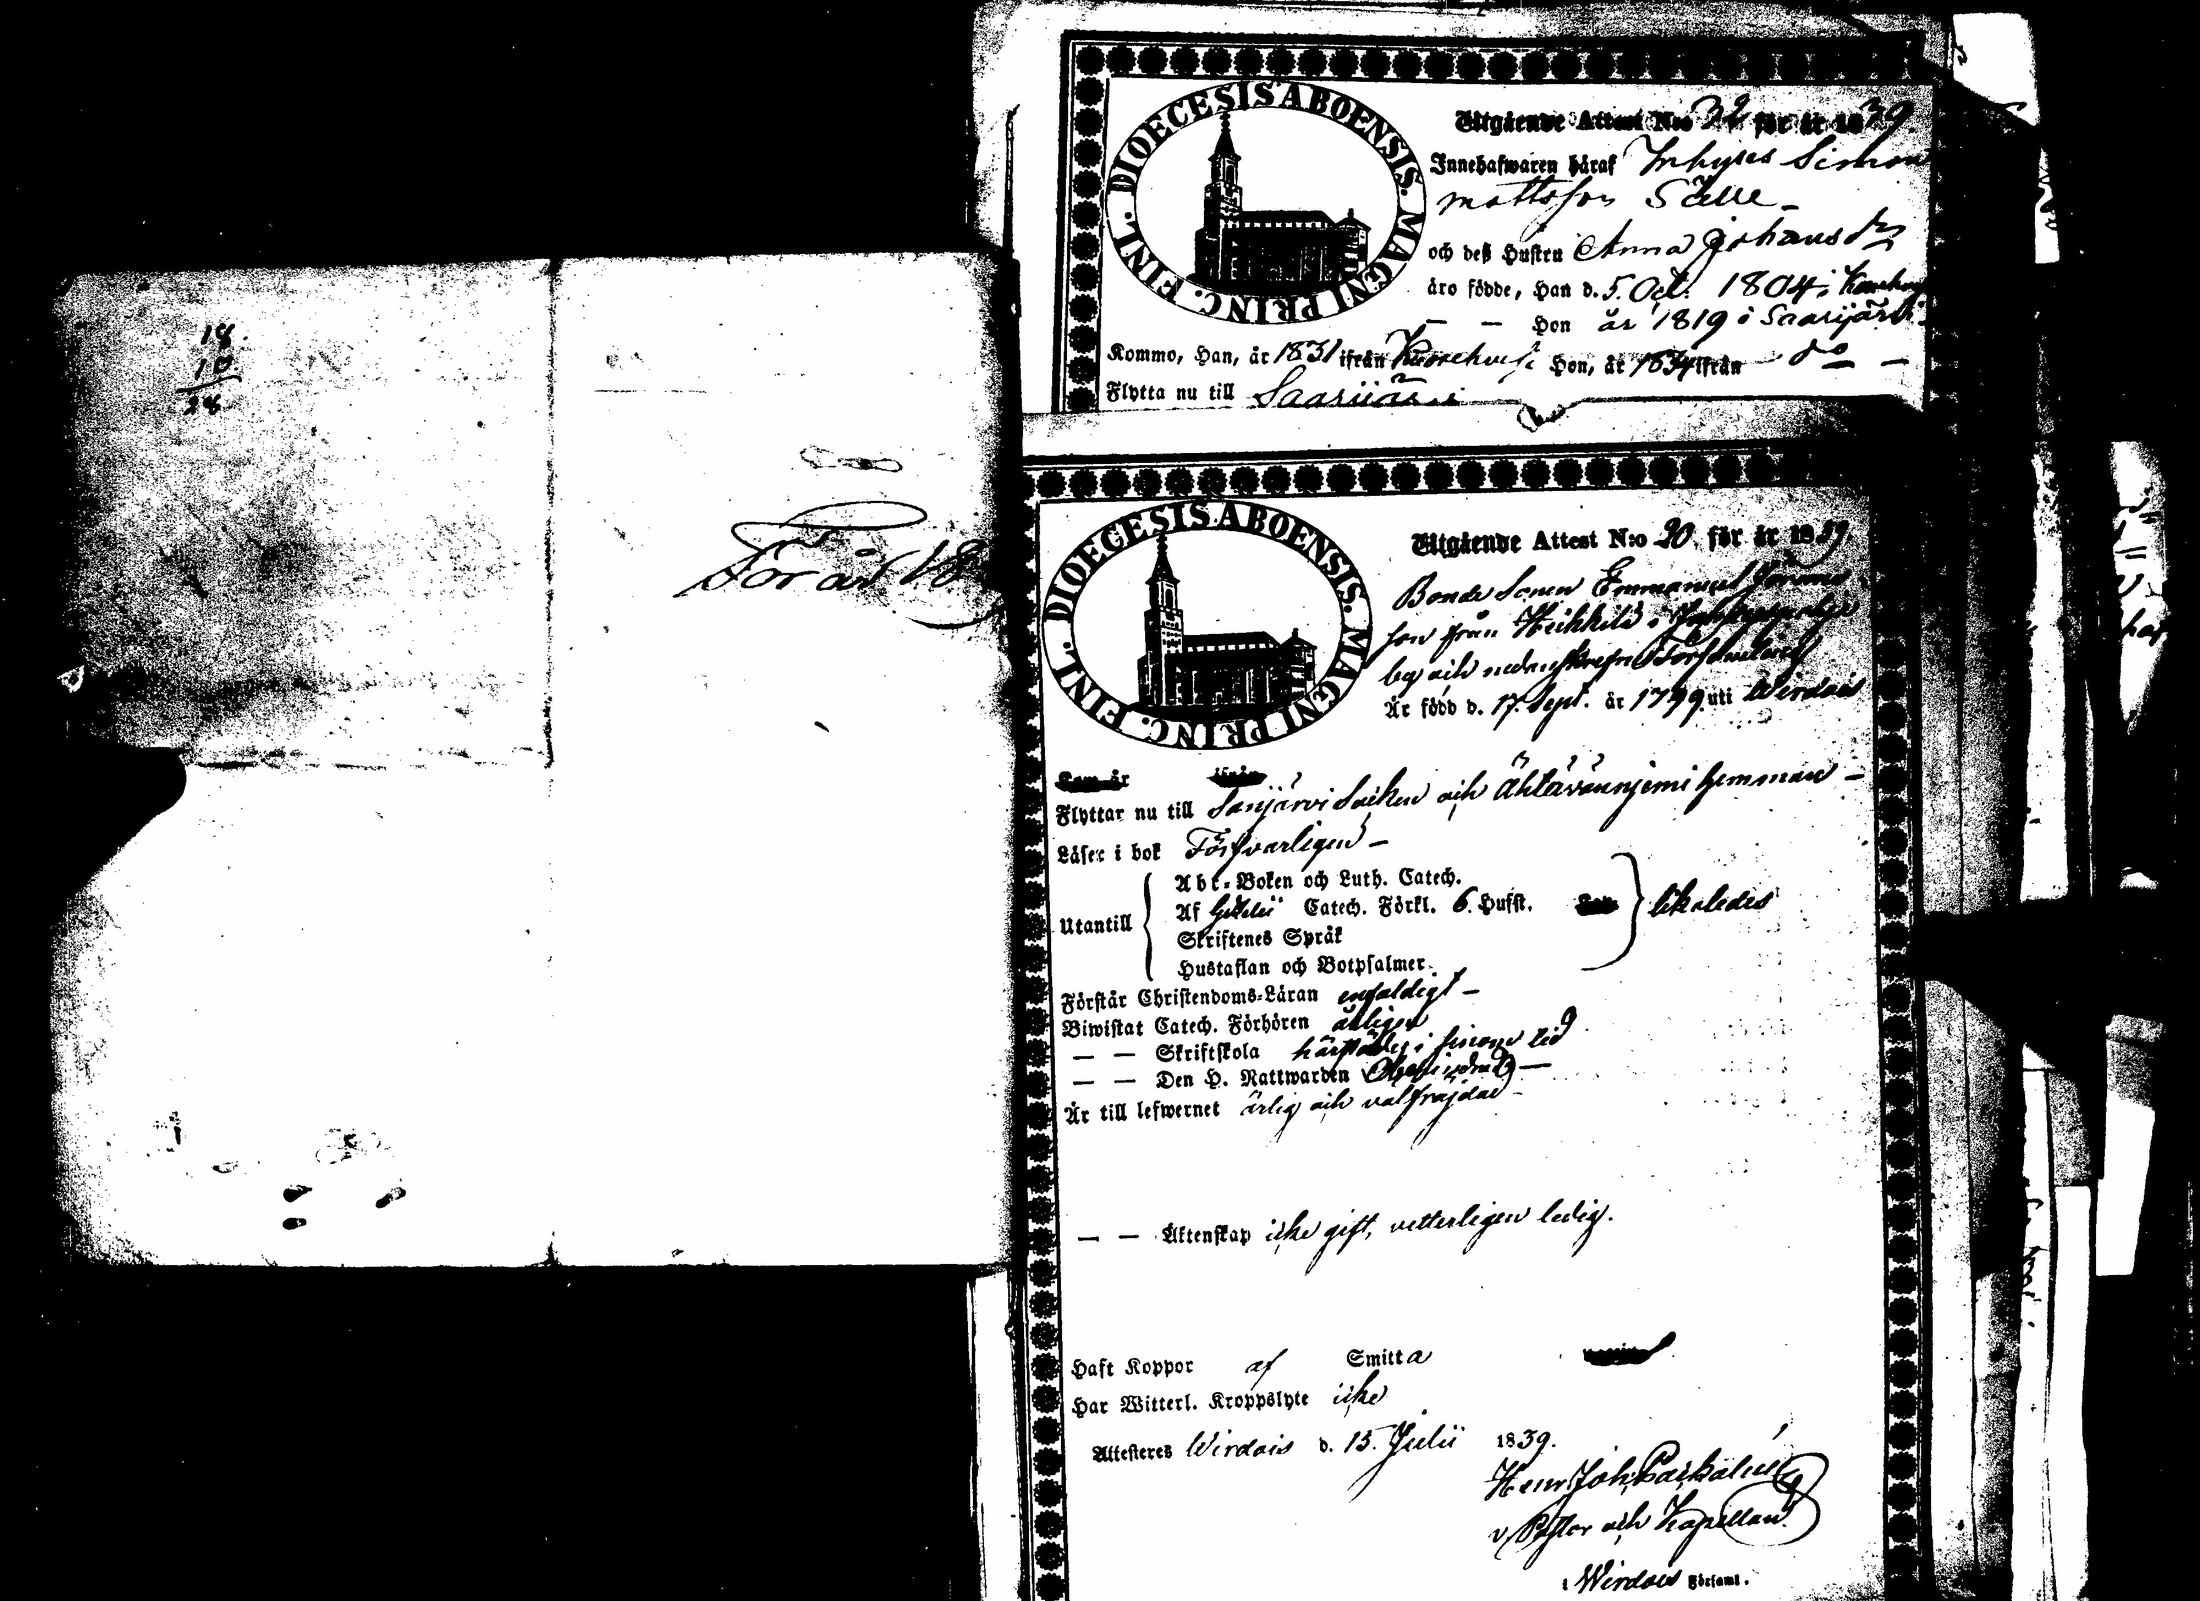 18
10
28
För år 18
DIOECESIS ABOENSIS. MAGNI PRINC. FINL.
Utgående Attest N:o 32 för år 1839.
Innehafwaren häraf Inhyses Simon
Mattsson
och deß Hustru Anna Johansdr
äro födde, Han d. 5. Oct. 1804 i
— — Hon år 1819 i Saarijärvi.
Kommo, Han, år 1831 ifrån Hon, år 1834 ifrån do —
Flytta nu till Saarijärvi
DIOECESIS ABOENSIS. MAGNI PRINC. FINL.
Utgående Attest N:o 20. för år 1839.
Bonde Sonen Emmanuel
son från Heikkilä i
by och Församling
Är född d. 17. Sept. år 1799 uti Wirdois
Kom år ifrån
Flyttar nu till Sarijärvi Socken och hemman —
Läser i bok Försvarligen —
Abc-Boken och Luth. Catech.
Utantill Af Catech. Förkl. 6. Hufst. likaledes
Skriftenes Språk
Hustaflan och Botpsalmer.
Förstår Christendoms-Läran enfaldigt —
Biwistat Catech. Förhören årligen
— — Skriftskola härstädes i sinom tid
— — Den H. Nattwarden —
Är till lefwernet ärlig och välfräjdad —
— — Äktenskap icke gift, vetterligen ledig.
Haft Koppor af Smitta
Har Witterl. Kroppslyte icke
Attesteres Wirdois d. 15. Julii 1839.
Henr. Joh.
v. Pastor och Kapellan
i Wirdois Församl.